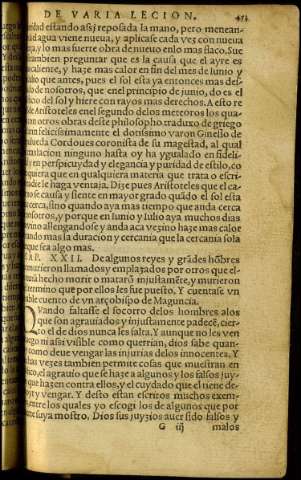 DE VARIA LECION.
aridad estando assi reposada la mano, pero menean-
dola agua viene nueua, y aplicase cada vez con nueua
y lo mas fuerte obra de nueuo enlo mas flaco. Sue
tambien preguntar que es la causa que el ayre es
caliente, y haze mas calor en fin del mes de Iunio y
Iulio que antes, pues el sol esta ya entonces mas des-
de nosotros, que enel principio de junio, do es el
del sol y hiere con rayos mas derechos. A esto re
de Aristoteles enel segundo delos meteoros los qua-
con otras obras deste philosopho traduxo de griego
latin felicissimamente el doctissimo varon Ginesio de
pulueda Cordoues coronista de su magestad, al qual
tralacion ninguno hasta oy ha ygualado en fideli-
y en perspicuydad y elegancia y puridad de estilo, co
quiera que en qualquiera materia que trata o escri-
le haga ventaja. Dize pues Aristoteles que el ca-
no se causa y siente en mayor grado quãdo el sol esta
cerca, sino quando aya mas tiempo que anda cerca
nosotros, y porque en Iunio y Iulio aya muchos dias
vino allengandose y anda aca vezino haze mas calor
ando mas la duracion y cercania que la cercania sola
que sea algo mas.
CAP. XXII. De algunos reyes y grãdes hõbres
murieron llamados y emplazados por otros que el-
hecho morir o mataró injustamẽte, y murieron
termino que por ellos les fue puesto. Y cuentase vn
ble cuento de vn arçobispo de Maguncia.
QVando faltasse el socorro delos hombres alos
que son agrauiados y injustamente padecẽ, cier-
el de dios nunca les falta. Y aunque no les ven
ni assi visible como querrian, dios sabe quan-
como deue vengar las injurias delos innocentes. Y
has vezes tambien permite cosas que muestran en
el agrauio que se haze a algunos y los falsos juy-
que hazen contra ellos, y el cuydado que el tiene de-
y vengar. Y desto estan escritos muchos exem-
entre los quales yo escogi los de algunos que por
suya mostro. Dios sus juyzios auer sido falsos y
G iij malos